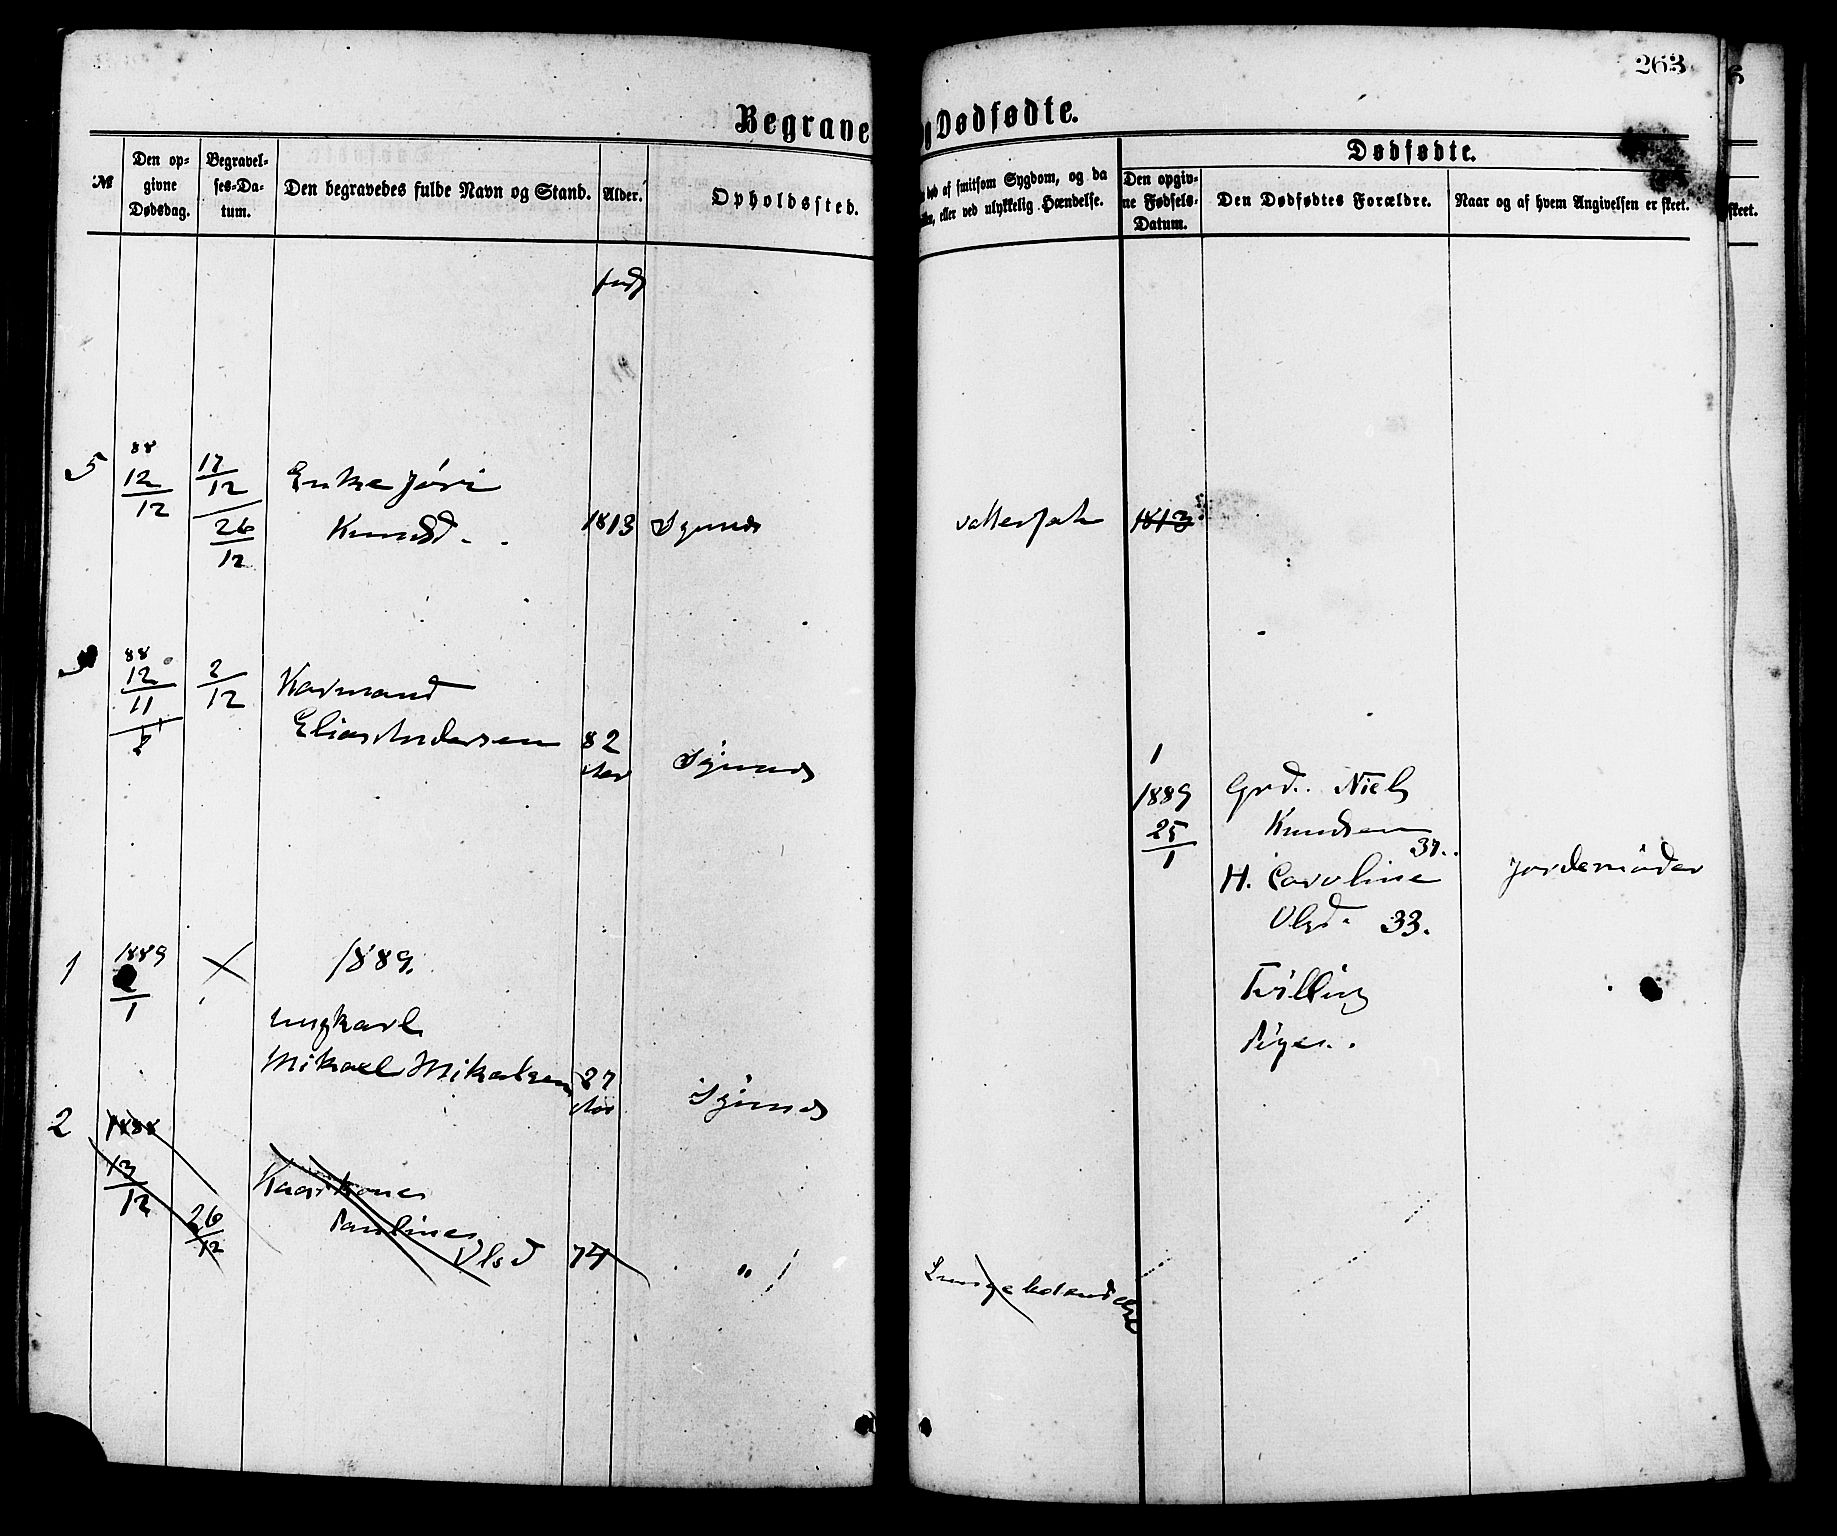 263
Begrave
Dødfødte.
№
Den op-
givne
Dødsdag.
Begravel-
ses-Da-
tum.
Den begravedes fulde Navn og Stand.
Alder.
Opholdssted.
død af smitsom Sygdom, og da
eller ved ulykkelig Hændelse.
Dødfødte.
Den opgiv-
ne Fødsels-
Datum.
Den Dødfødtes Forældre.
Naar og af hvem Angivelsen er skeet.
skeet.
født
5
88
12/12
17/12
26/12
Enke Jøri
Knudsd.
1813
1813
88
12/11
2/12
Kaarmand
Elias Andersen
82
Aar
1
1889
25/1
Grd. Niels
Knudsen
37.
H. Caroline
Olsd. 33.
Tvilling
Piger.
Jordemoder
1
1889
2/1
1889.
Ungkarl
Mikael Mikalsen
27
Aar
2
1888
13/12
26/12
Kaarkone
Pauline
Olsd
74
"